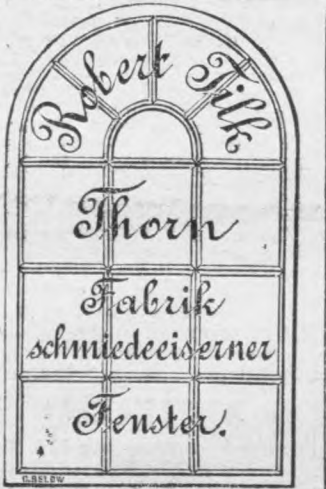 Robert Tilk
Thorn
Fabrik
schmiedeeiserner
Fenster.
C.BELOW